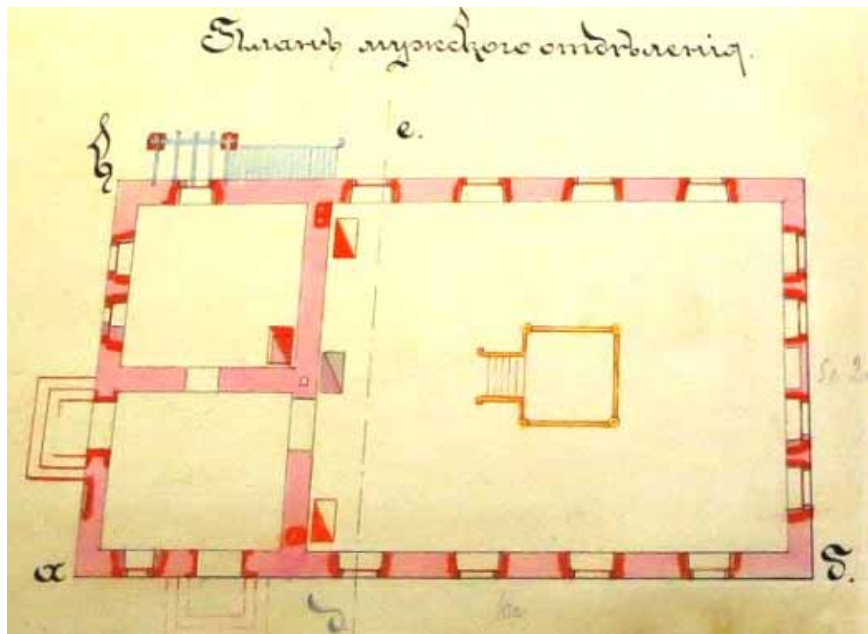 Планъ мужского отдѣленія.
в
е.
а
д
б.